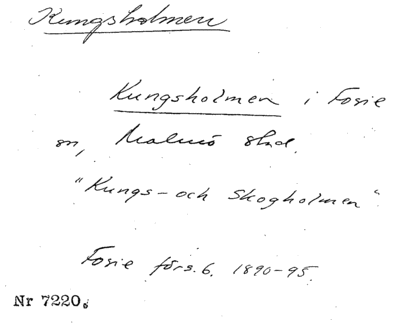 Kungsholmen
Kungsholmen i Fosie
sn, Malmö stad.
"Kungs- och Skogholmen".
Fosie förs. 6. 1890-95.
Nr 7220.